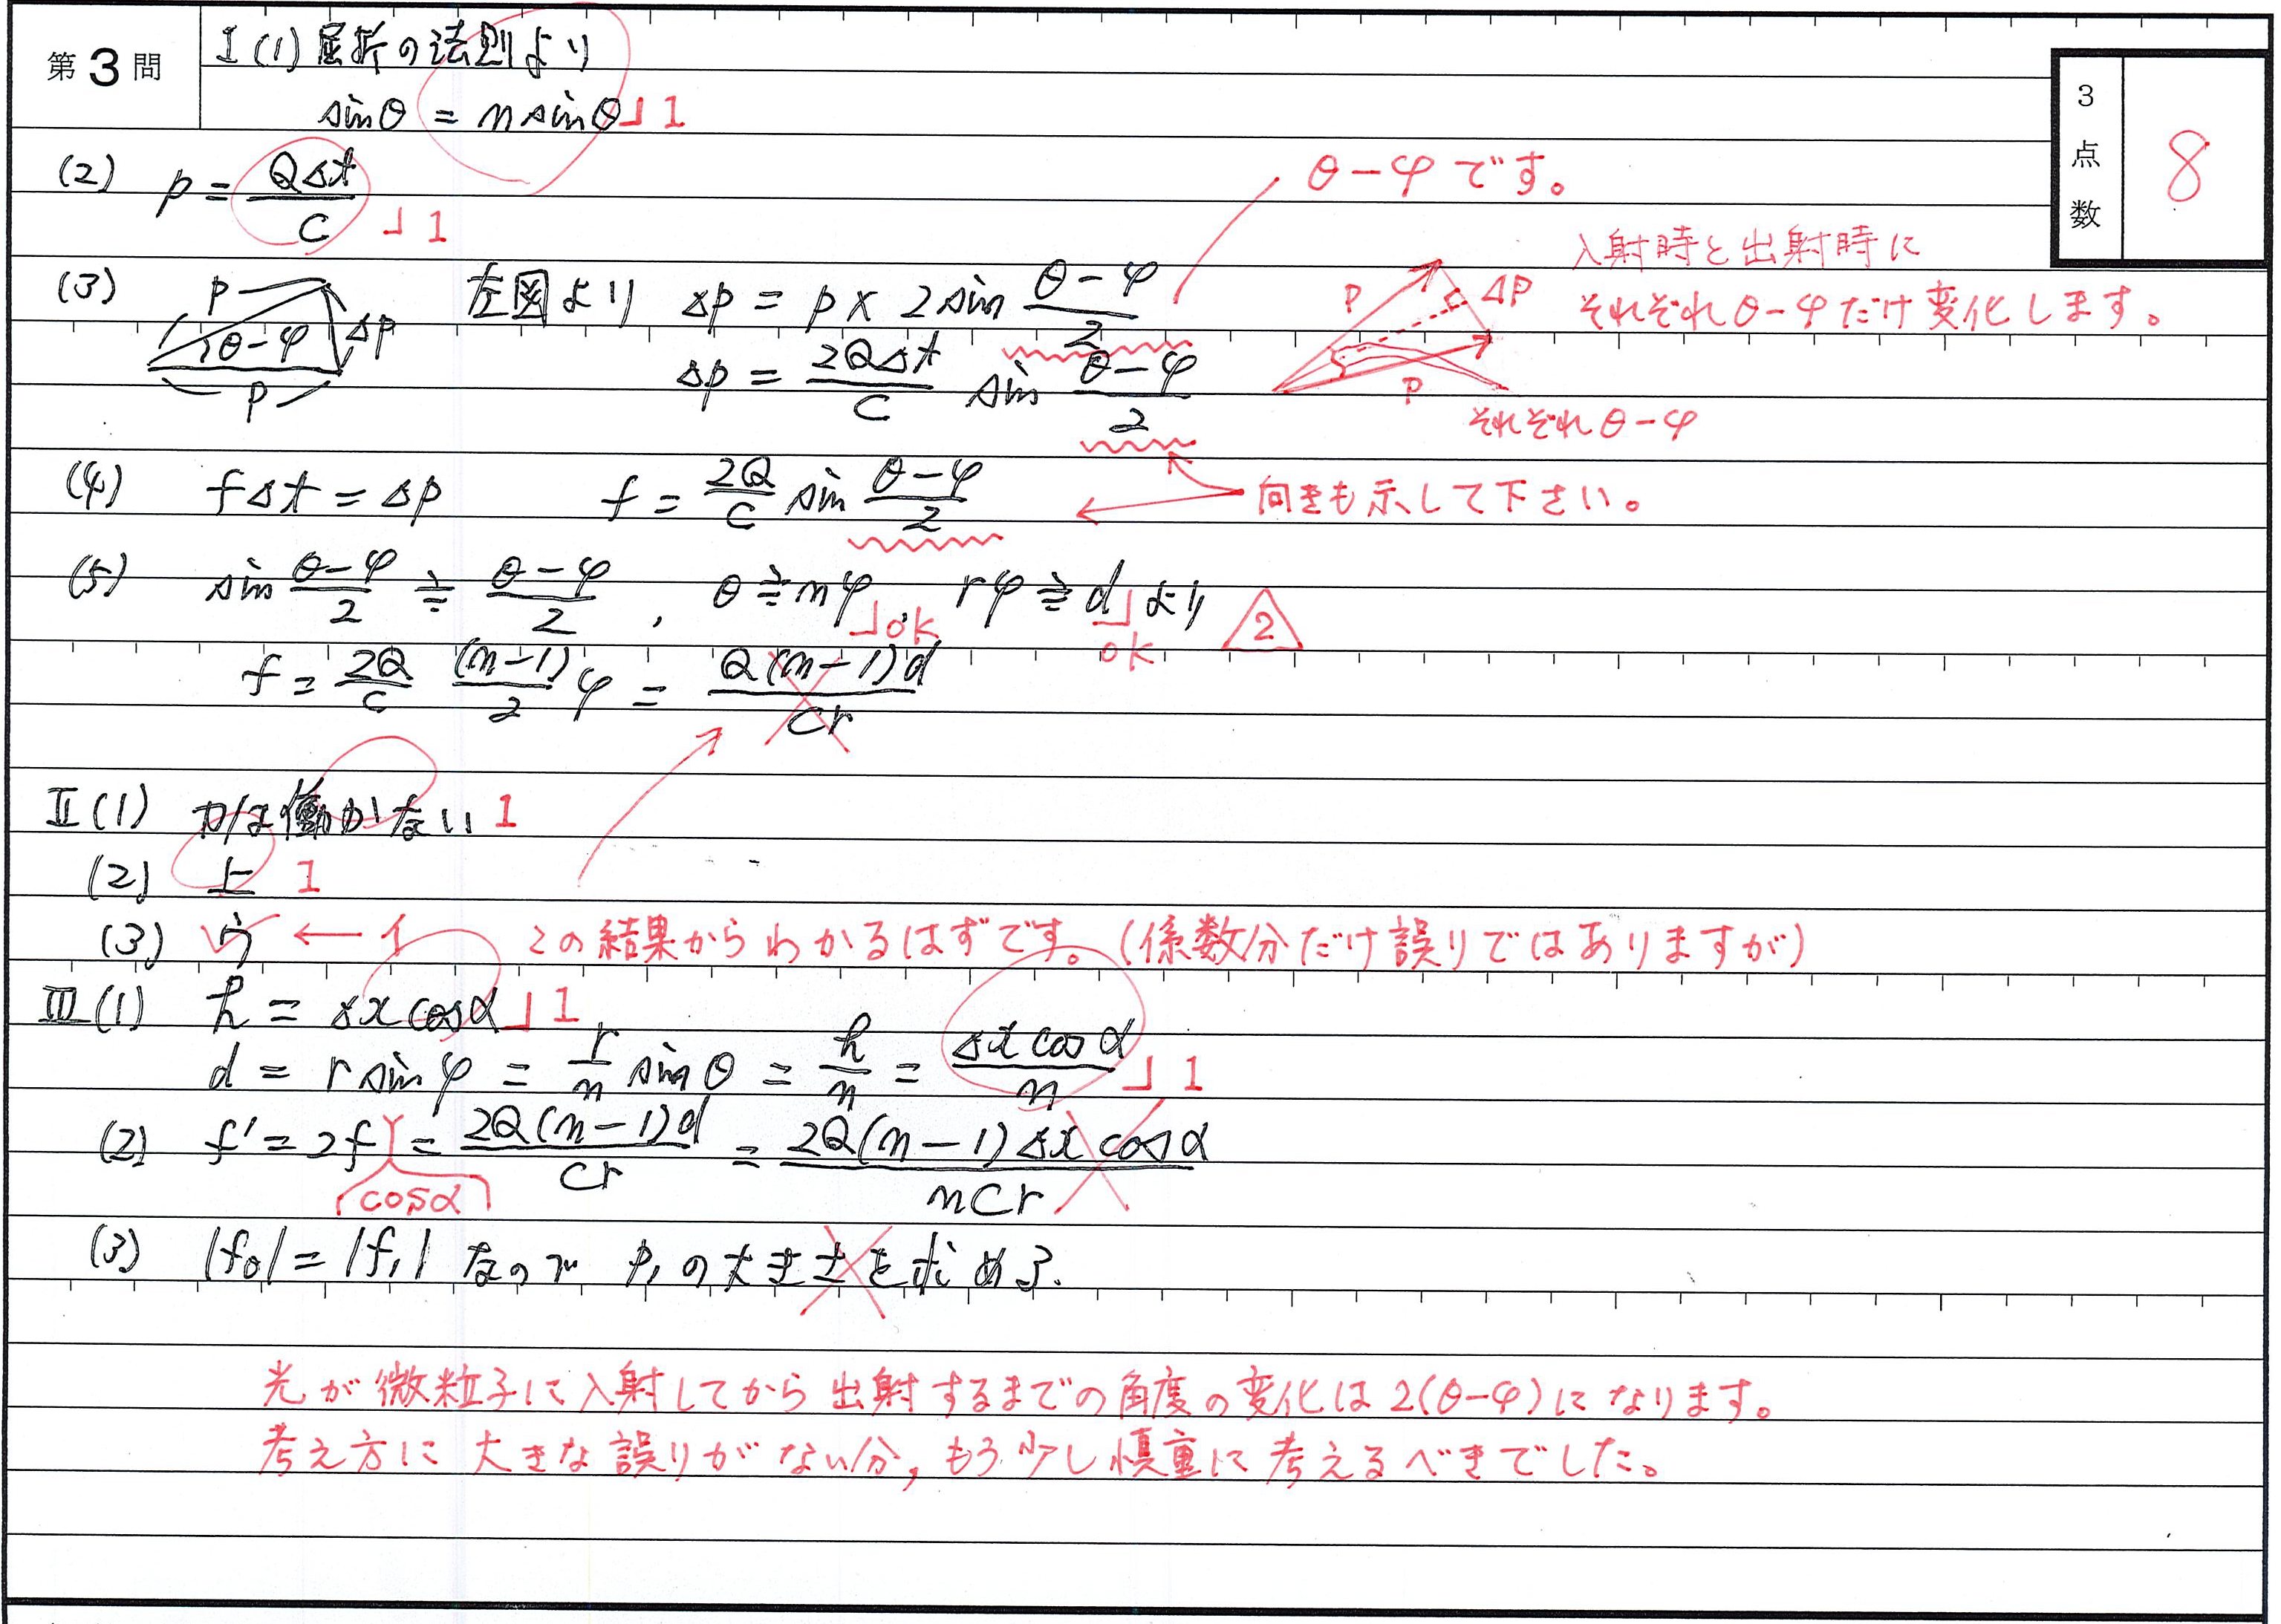 第3問
I (1) 屈折の法則より
sinθ = n sinθ 」1
3点数 8
(2) p = QΔt/C 」1
θ-φ です。
入射時と出射時に
それぞれθ-φだけ変化します。
(3) p θ-φ Δp p 左図より Δp = p × 2 sin (θ-φ)/2
p Δp p
Δp = 2QΔt/C sin (θ-φ)/2
それぞれθ-φ
(4) fΔt = Δp f = 2Q/C sin (θ-φ)/2
向きも示して下さい。
(5) sin (θ-φ)/2 ≒ (θ-φ)/2 , θ≒nφ 」ok rφ≒d 」ok より 2
f = 2Q/C (n-1)/2 φ = Q(n-1)d/Cr
II (1) 力は働かない 1
(2) 上 1
(3) ウ ← イ この結果からわかるはずです。(係数分だけ誤りではありますが)
III (1) h = Δx cosα 」1
d = r sinφ = r/n sinθ = h/n = Δx cosα/n 」1
(2) f' = 2f = 2Q(n-1)d/Cr = 2Q(n-1)Δx cosα/nCr
cosα
(3) |f₀| = |f₁| なので P₁の大きさを求める.
光が微粒子に入射してから出射するまでの角度の変化は2(θ-φ)になります。
考え方に大きな誤りがない分,もう少し慎重に考えるべきでした。